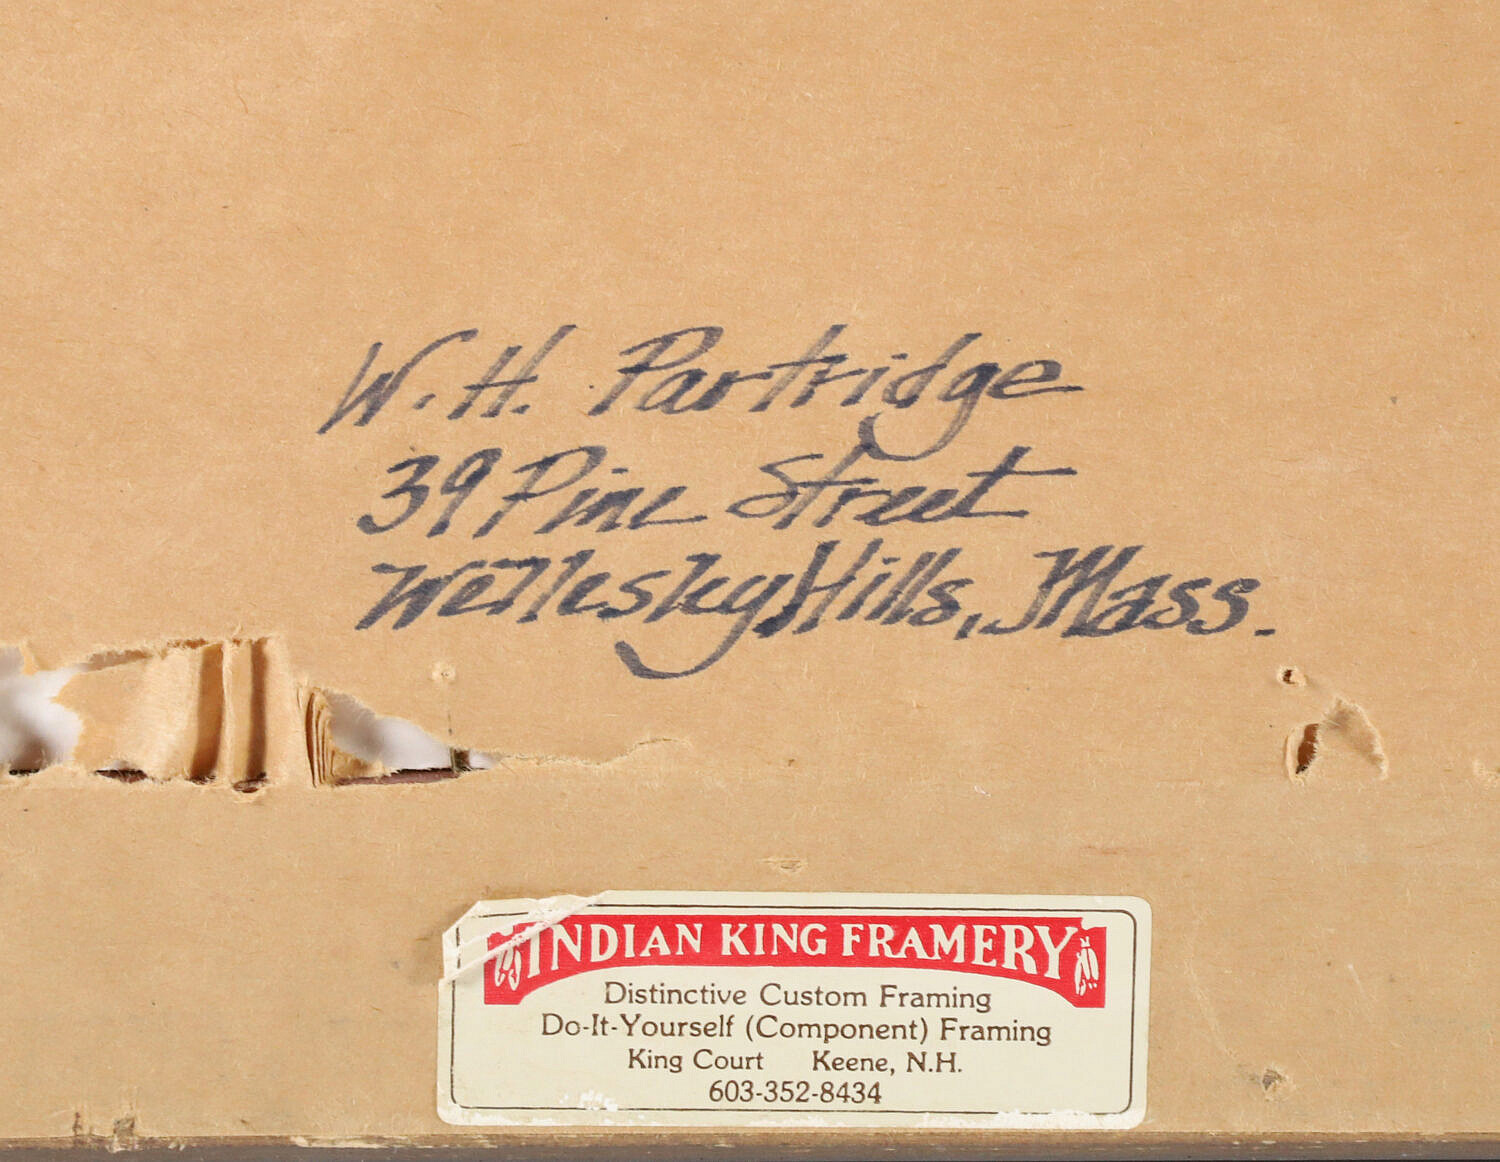 W. H. Partridge
39 Pine Street
Wellesley Hills, Mass.
INDIAN KING FRAMERY
Distinctive Custom Framing
Do-It-Yourself (Component) Framing
King Court Keene, N.H.
603-352-8434